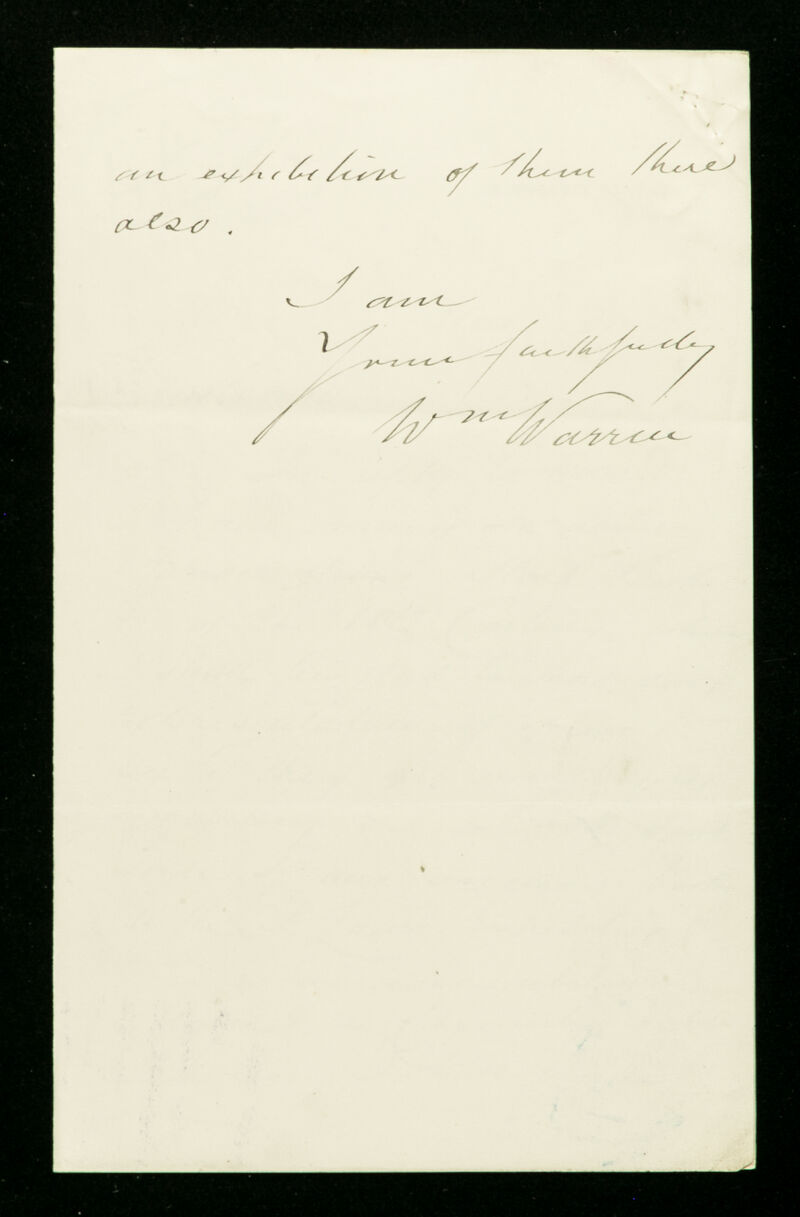 an exhibition of them there
also.
I am
Yours faithfully
Wm Warren